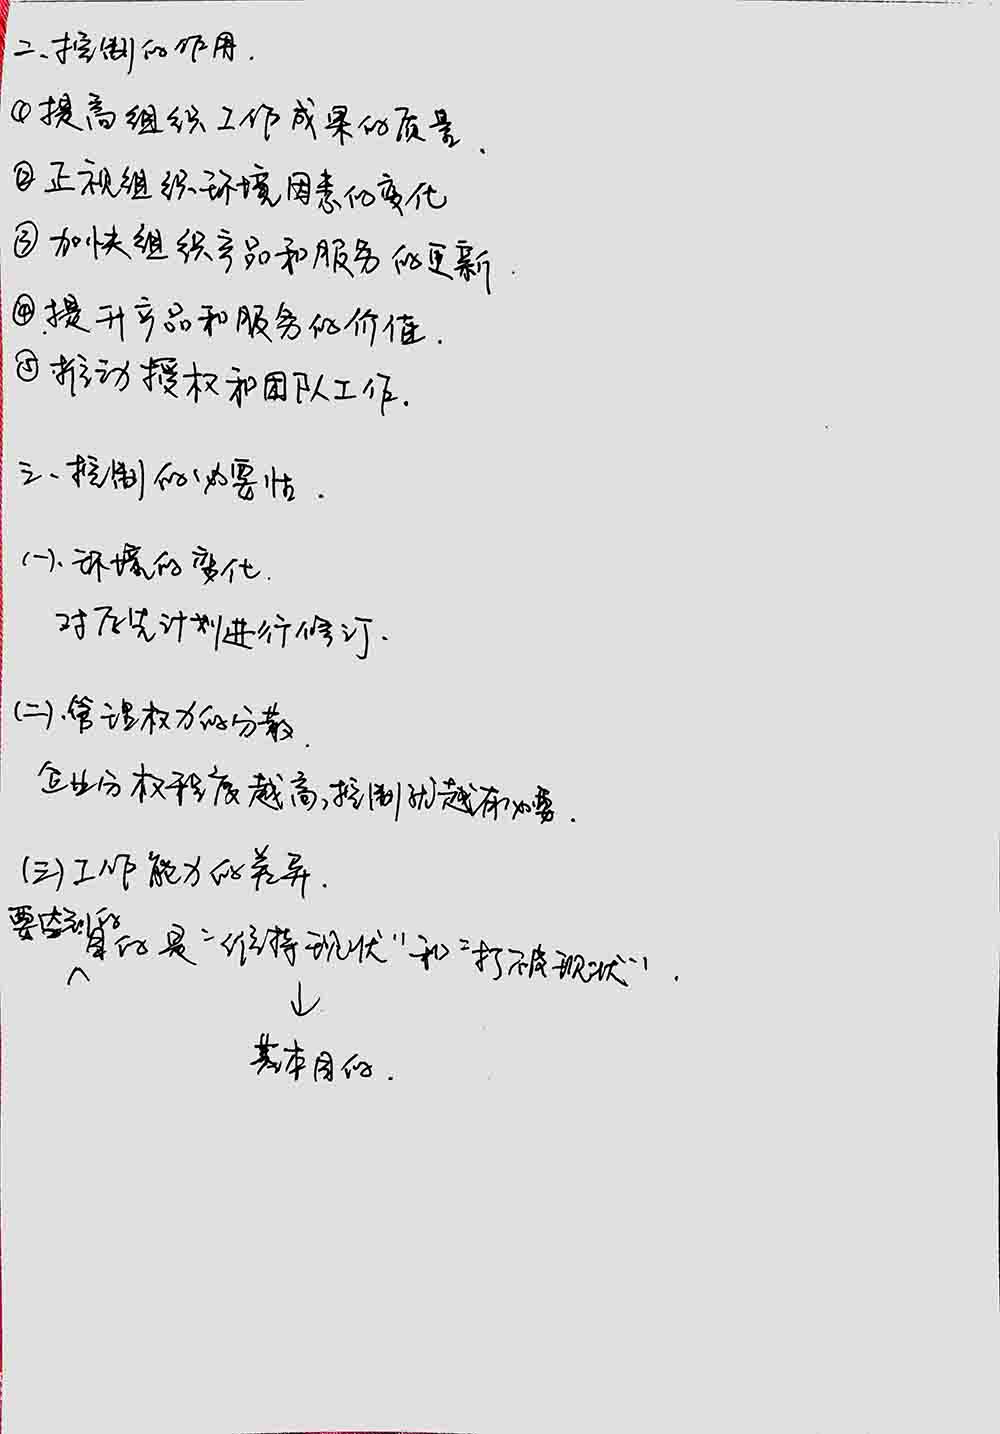 二、控制的作用.
①提高组织工作成果的质量.
②正视组织环境因素的变化
③加快组织产品和服务的更新.
④提升产品和服务的价值.
⑤推动授权和团队工作.
三、控制的必要性.
(一)、环境的变化.
对原先计划进行修订.
(二)、管理权力的分散.
企业分权程度越高,控制就越有必要.
(三)工作能力的差异.
要达到的
目的是“维持现状”和“打破现状”.
↓
基本目的.